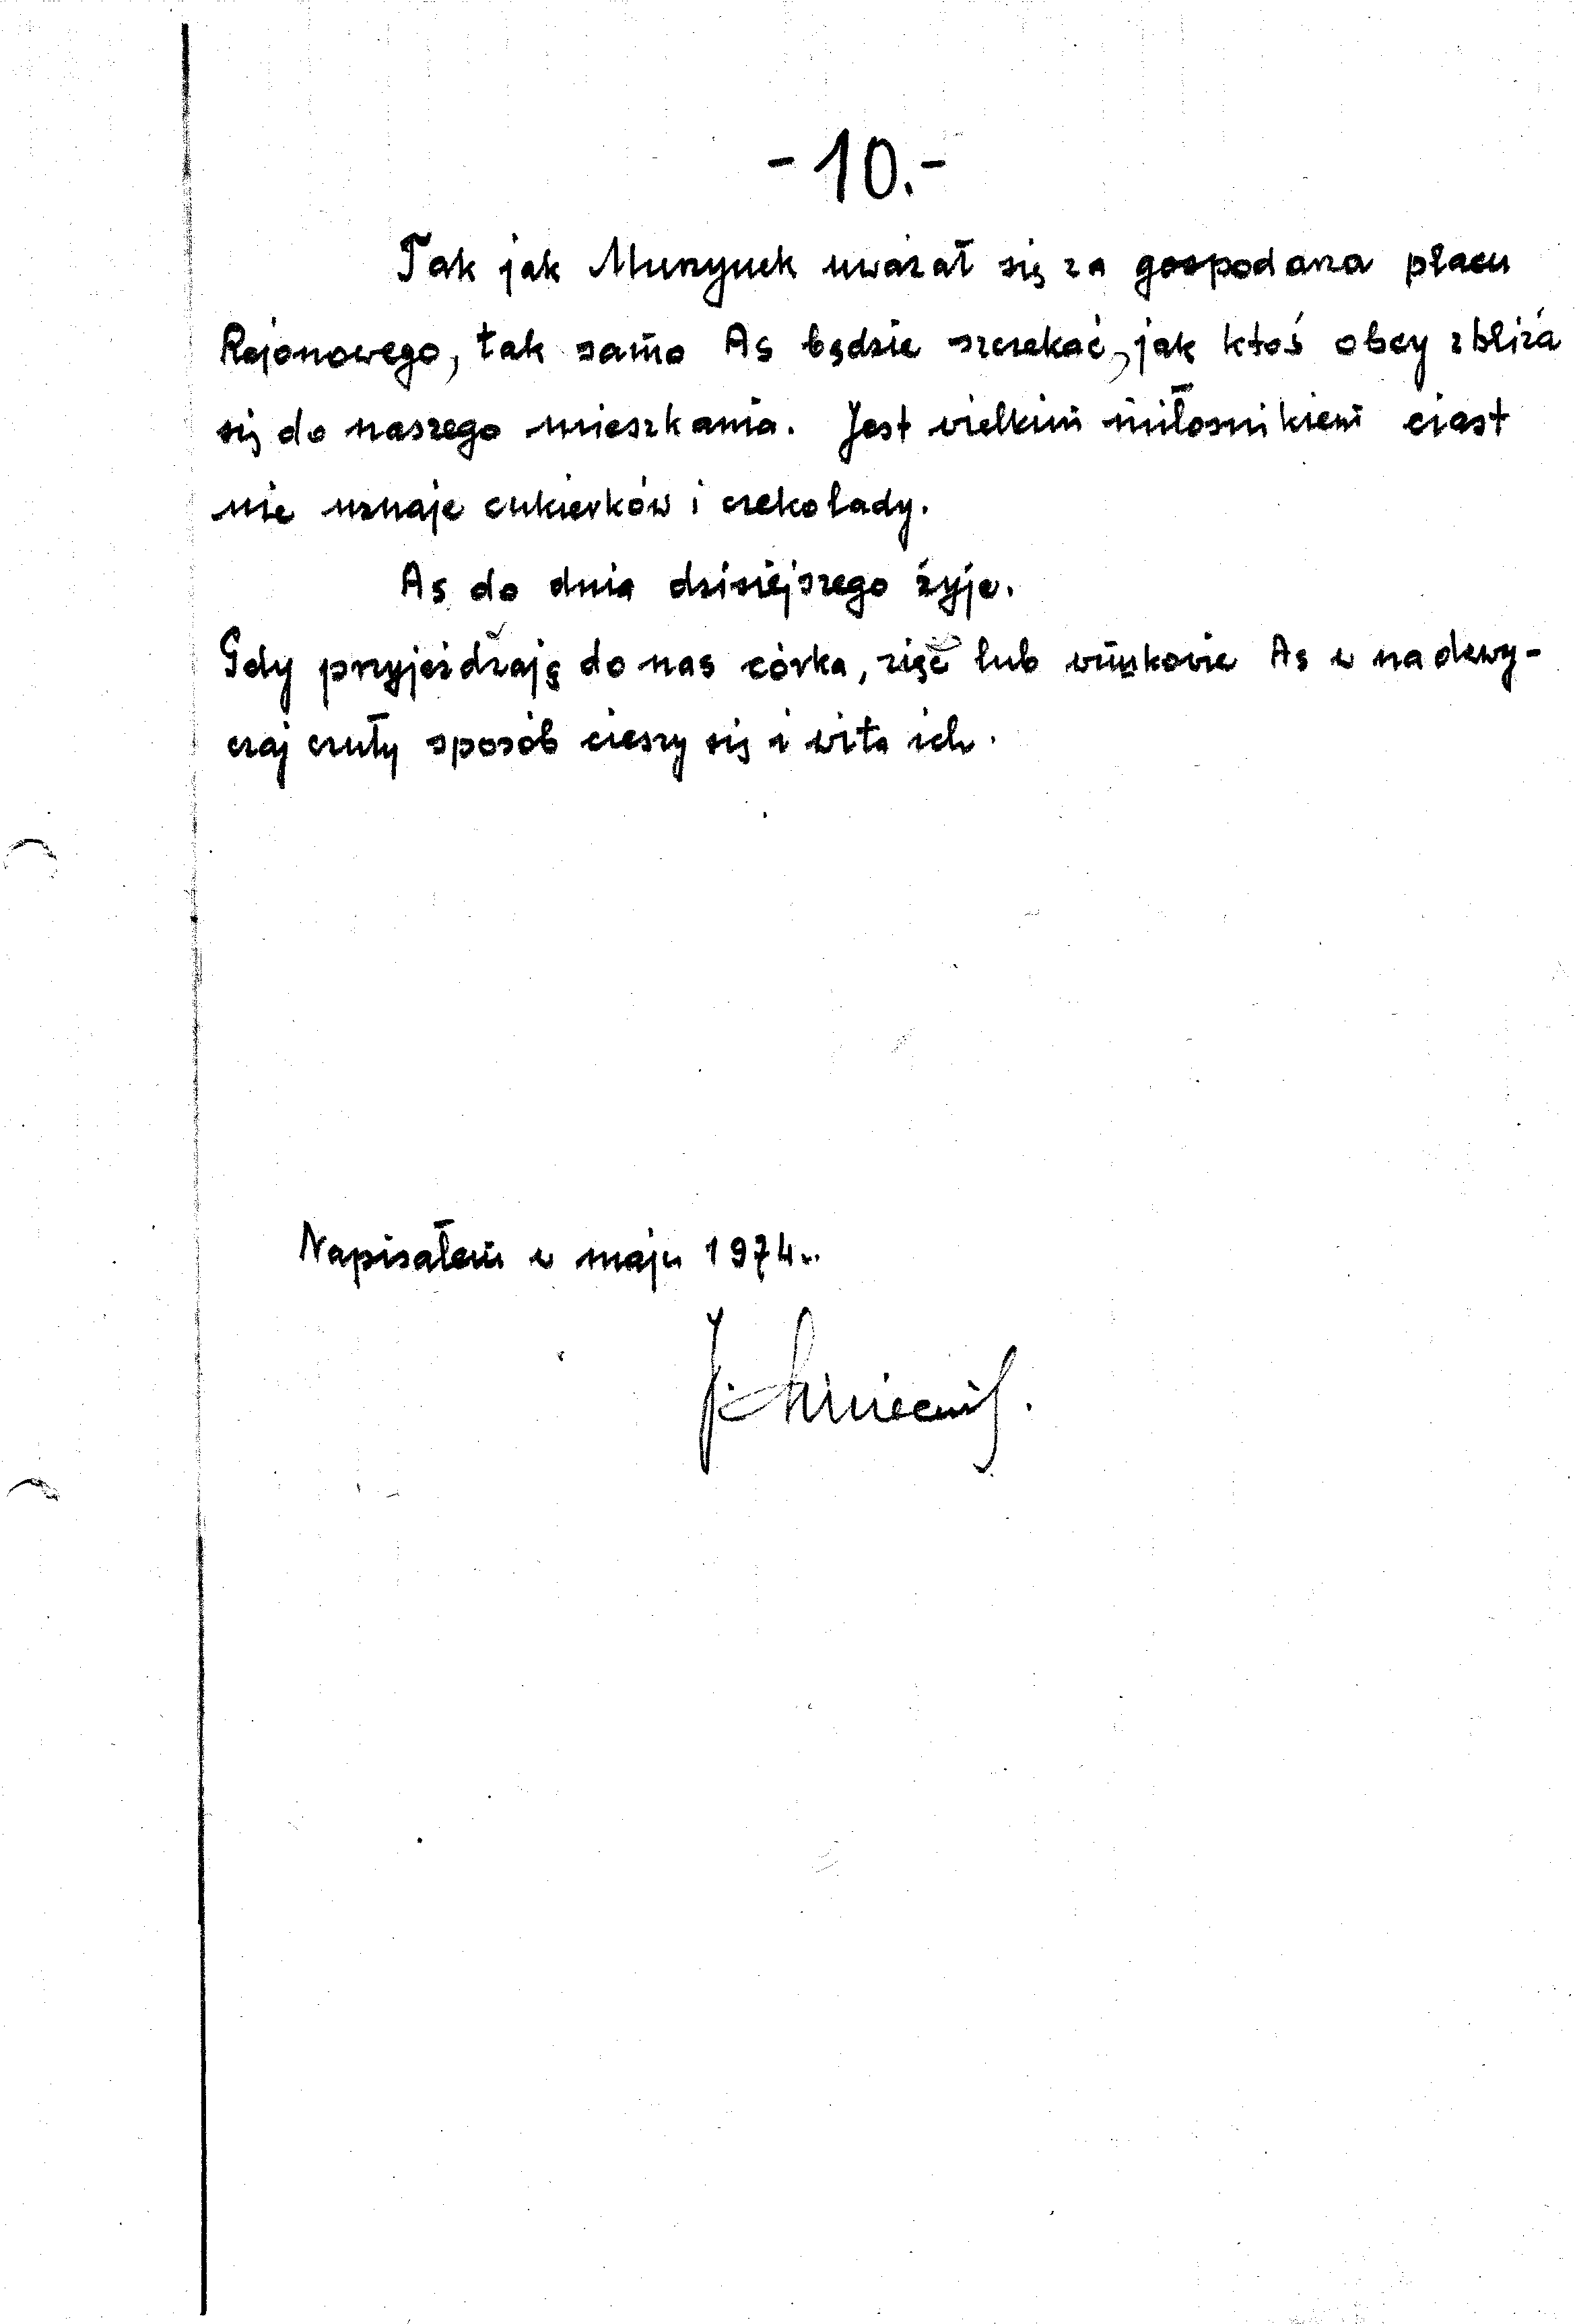 - 10. -
Tak jak Murzynek uważał się za gospodarza placu
Rejonowego, tak samo As będzie szczekać, jak ktoś obcy zbliża
się do naszego mieszkania. Jest wielkim miłośnikiem ciast
nie uznaje cukierków i czekolady.
As do dnia dzisiejszego żyje.
Gdy przyjeżdżają do nas córka, zięć lub wnukowie As w nadzwy-
czaj czuły sposób cieszy się i wita ich.
Napisałem w maju 1974r.